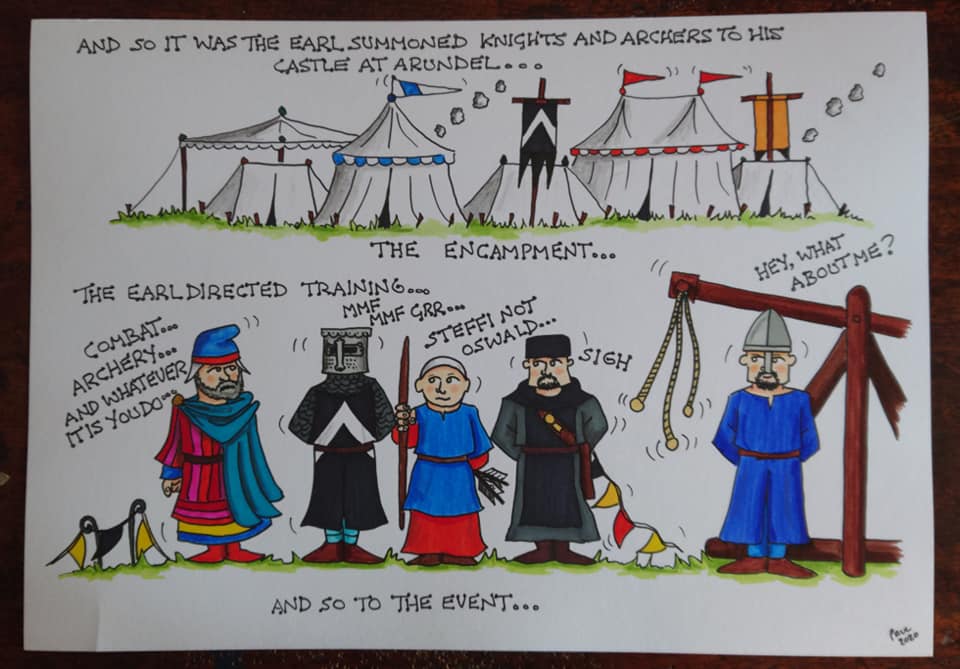 AND SO IT WAS THE EARL SUMMONED KNIGHTS AND ARCHERS TO HIS
CASTLE AT ARUNDEL...
THE ENCAMPMENT...
THE EARL DIRECTED TRAINING...
COMBAT...
ARCHERY...
AND WHATEVER
IT IS YOU DO...
MMF
MMF GRR...
STEFFI NOT
OSWALD...
SIGH
HEY, WHAT
ABOUT ME?
AND SO TO THE EVENT...
PAUL
2020